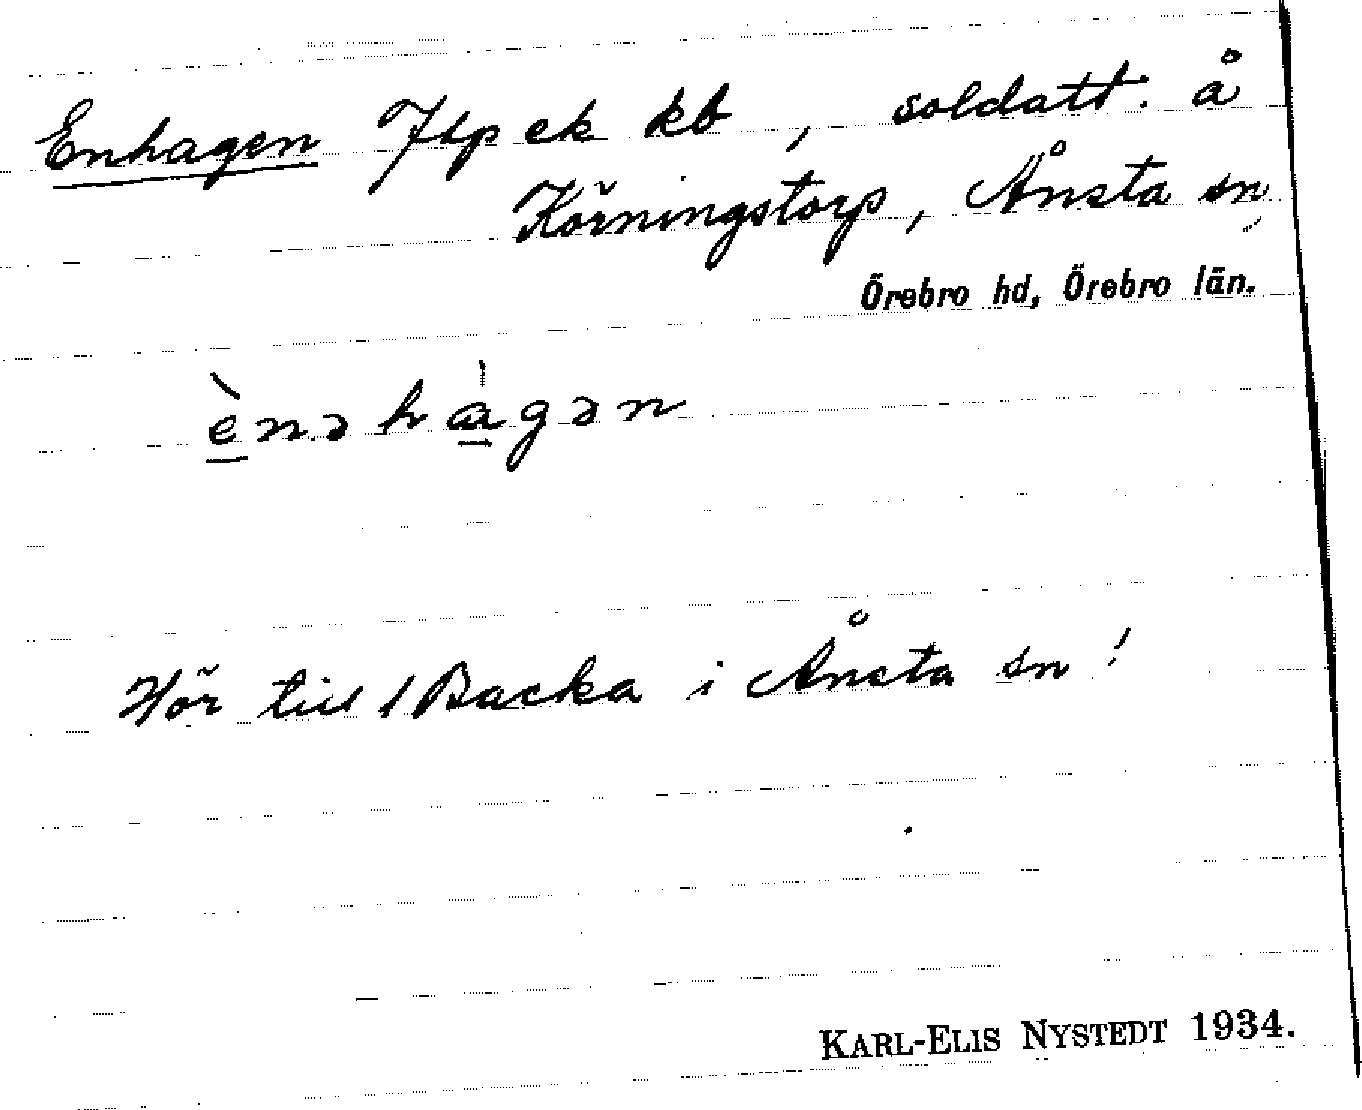 Enhagen Jlp ek kb, soldatt. å
Körningstorp, Ånsta sn,
Örebro hd, Örebro län.
è̱nəhà̱gən
Hör till Backa i Ånsta sn!
KARL-ELIS NYSTEDT 1934.